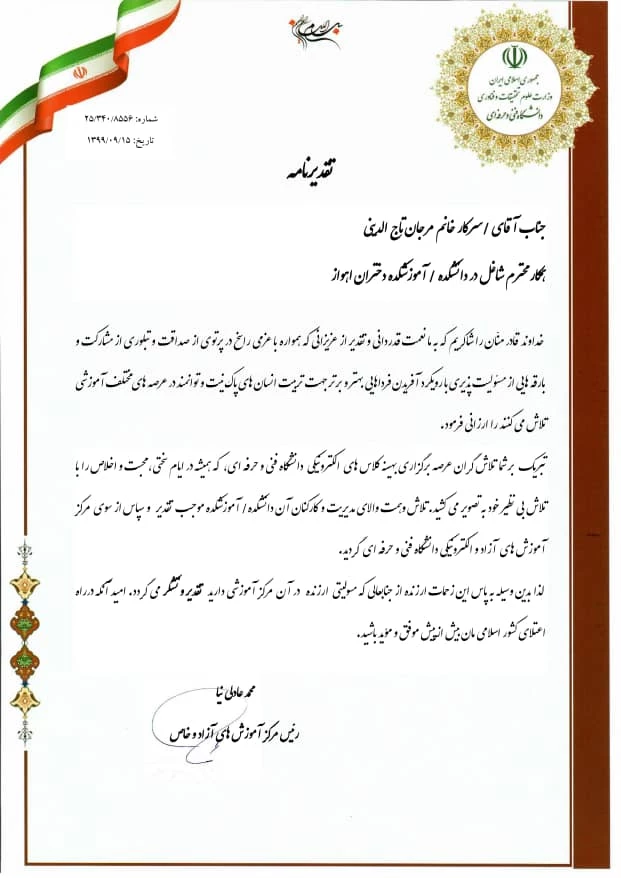 بسم الله الرحمن الرحیم
جمهوری اسلامی ایران
وزارت علوم تحقیقات و فناوری
دانشگاه فنی و حرفه ای
شماره: ۲۵/۳۴۰/۸۵۵۶
تاریخ: ۱۳۹۹/۰۹/۱۵
تقدیرنامه
جناب آقای / سرکار خانم مرجان تاج الدینی
همکار محترم شاغل در دانشکده / آموزشکده دختران اهواز
خداوند قادر منان را شاکریم که به ما نعمت قدردانی و تقدیر از عزیزانی که همواره با عزمی راسخ در پرتوی از صداقت و تبلوری از مشارکت و
بارقه هایی از مسئولیت پذیری با رویکرد آفریدن فرداهایی بهتر و برتر جهت تربیت انسان های پاک نیت و توانمند در عرصه های مختلف آموزشی
تلاش می کنند را ارزانی فرمود.
تبریک بر شما تلاش گران عرصه برگزاری بهینه کلاس های الکترونیکی دانشگاه فنی و حرفه ای، که همیشه در ایام سختی، محبت و اخلاص را با
تلاش بی نظیر خود به تصویر می کشید. تلاش و همت والای مدیریت و کارکنان آن دانشکده/ آموزشکده موجب تقدیر و سپاس از سوی مرکز
آموزش های آزاد و الکترونیکی دانشگاه فنی و حرفه ای گردید.
لذا بدین وسیله به پاس این زحمات ارزنده از جنابعالی که مسولیتی ارزنده در آن مرکز آموزشی دارید تقدیر و تشکر می گردد. امید آنکه در راه
اعتلای کشور اسلامی مان بیش از پیش موفق و موید باشید.
محمد عادلی نیا
رئیس مرکز آموزش های آزاد و خاص